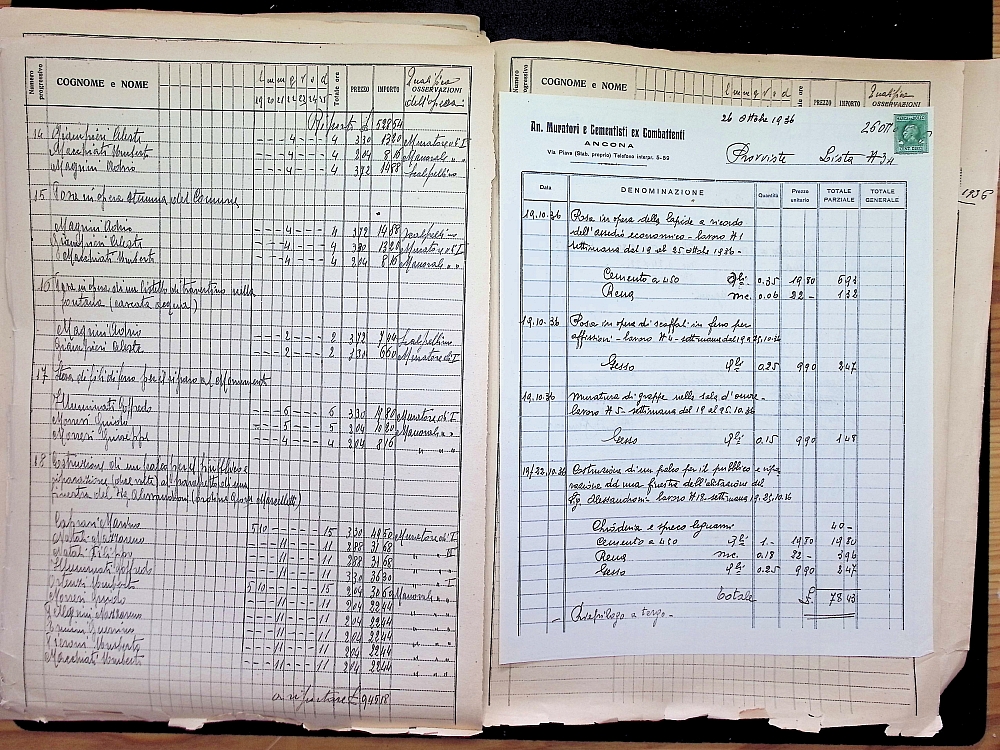 Numero progressivo
COGNOME e NOME
l m m g v s d
19 20 21 22 23 24 25
Totale ore
PREZZO
IMPORTO
Qualifica
OSSERVAZIONI
dell'operaio
Riporti £ 588 54
14 Giampieri Celeste - - - 4 - - - 4 3 30 13 20 Muratore di I
Macchiati Umberto - - - 4 - - - 4 2 04 8 16 Manovale " "
Magnini Advio - - - 4 - - - 4 3 72 14 88 Scalpellino
15 Posa in opera stemma del Comune
Magnini Advio - - - 4 - - - 4 3 72 14 88 Scalpellino
Giampieri Celeste - - - 4 - - - 4 3 30 13 20 Muratore di I
Macchiati Umberto - - - 4 - - - 4 2 04 8 16 Manovale " "
16 Posa in opera di un listello di travertino nella
fontana (cascata acqua)
Magnini Advio - - - 2 - - - 2 3 72 7 44 Scalpellino
Giampieri Celeste - - - 2 - - - 2 3 30 6 60 Muratore di I
17 Stesa di fili di ferro per il riparo al Monumento
Illuminati Goffredo 6 6 3 30 19 80 Muratore di I
Morresi Guido 5 5 2 04 10 20 Manovale " "
Morresi Giuseppe 4 4 2 04 8 16 " "
18 Costruzione di un palco per il pubblico e
riparazione (due volte) al parapetto di una
finestra del Fg. Alessandroni
5 10 - - - - 15 3 30 49 50 Muratore di I
Natali Nazzareno - - 11 - - - - 11 2 88 31 68 " " II
Natali Filippo - - 11 - - - - 11 2 88 31 68 " "
Illuminati Goffredo - - 11 - - - - 11 3 30 36 30 " " I
Umberto 5 10 - - - - 15 2 04 30 60 Manovale " "
Morresi Guido - - 11 - - - - 11 2 04 22 44 " "
Pellegrini Nazzareno - - 11 - - - - 11 2 04 22 44 " "
- - 11 - - - - 11 2 04 22 44 " "
Umberto - - 11 - - - - 11 2 04 22 44 " "
Macchiati Umberto - - 11 - - - - 11 2 04 22 44 " "
a riportare £ 945 18
Numero progressivo
COGNOME e NOME
l m m g v s d
ore
PREZZO
IMPORTO
Qualifica
OSSERVAZIONI
1936
26 Ottobre 1936
26 OTT
An. Muratori e Cementisti ex Combattenti
ANCONA
Via Piave (Stab. proprio) Telefono interpr. 5-59
Provviste Lista N 34
Data
DENOMINAZIONE
Quantità
Prezzo unitario
TOTALE PARZIALE
TOTALE GENERALE
19.10.36 Posa in opera della lapide a ricordo
dell'assedio economico - lavoro N 1
settimana dal 19 al 25 ottobre 1936 -
Cemento a 450 Qli 0.35 19 80 6 93
Rena mc. 0.06 22 - 1 32
19.10.36 Posa in opera di scaffali in ferro per
affissioni - lavoro N 4 - settimana dal 19 al 25.10.36
Gesso Qli 0.25 9 90 2 47
19.10.36 Muratura di grappe nella sala d'onore -
lavoro N 5 - settimana dal 19 al 25.10.36
Gesso Qli 0.15 9 90 1 48
19/22.10.36 Costruzione di un palco per il pubblico e ripa
razione ad una finestra dell'abitazione del
Fg. Alessandroni - lavoro N 18 - settimana 19.25.10.36
Chioderia e spreco legnami 40 -
Cemento a 450 Qli 1. - 19 80 19 80
Rena mc. 0.18 22 - 3 96
Gesso Qli 0.25 9 90 2 47
totale £. 78 43
- Riepilogo a tergo -